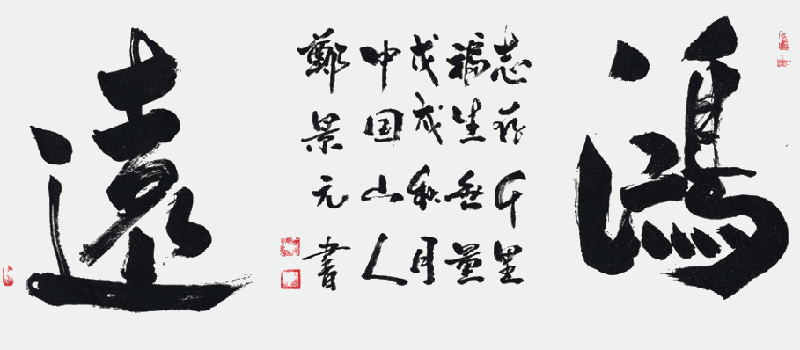 鴻
志在千里
福生無量
戊戌秋月
中国山人
鄭景元書
遠